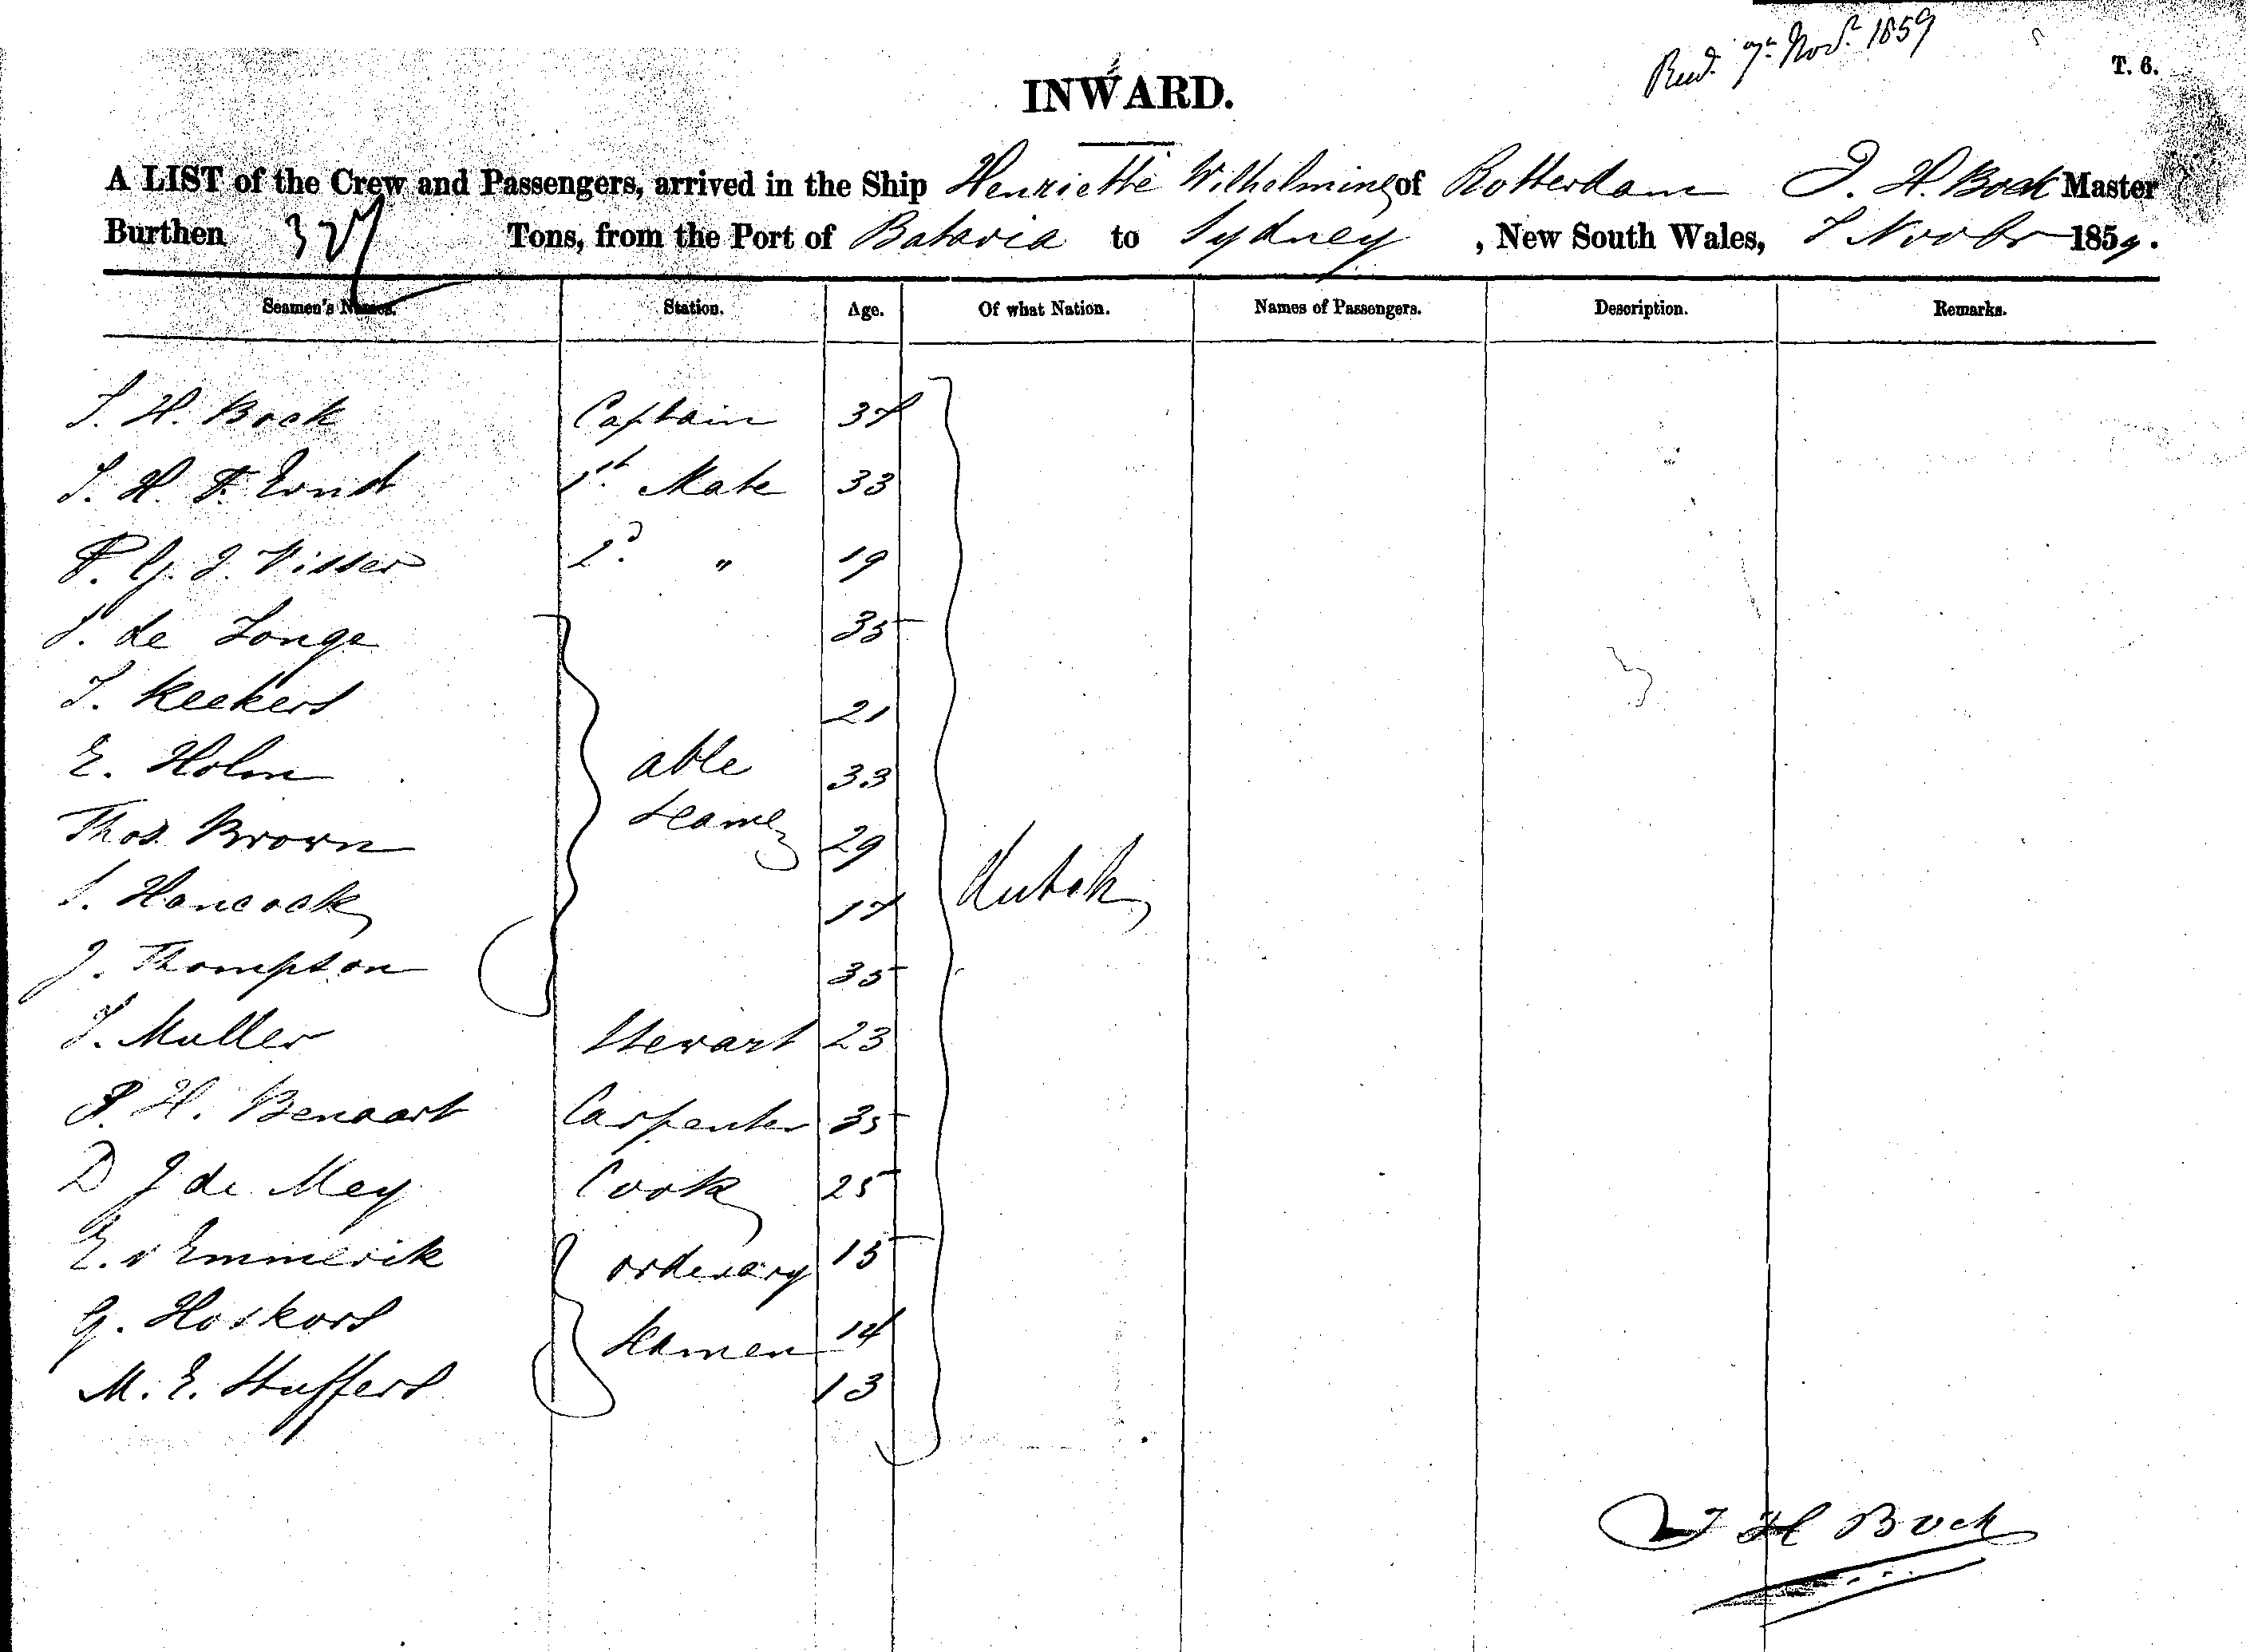 Recd. 7th Novr. 1859
T. 6.
INWARD.
A LIST of the Crew and Passengers, arrived in the Ship Henriette Wilhelmine of Rotterdam J. H. Bock Master
Burthen 327 Tons, from the Port of Batavia to Sydney, New South Wales, 7 Novbr 1859.
Seamen's Names. Station. Age. Of what Nation. Names of Passengers. Description. Remarks.
J. H. Bock Captain 37
J. H. F. Ernst 1st. Mate 33
P. G. J. Visser 2d. " 19
J. de Jonge 35
J. Keekers 21
E. Holm able 33
Thos. Brown Seamen 29
J. Hancock 17 Dutch
J. Thompson 35
J. Muller Stewart 23
P. H. Benaart Carpenter 35
D J de Mey Cook 25
E. v Emmerik orderary 15
G. Hoskors Seamen 14
M. E. Stuffers 13
J H Bock